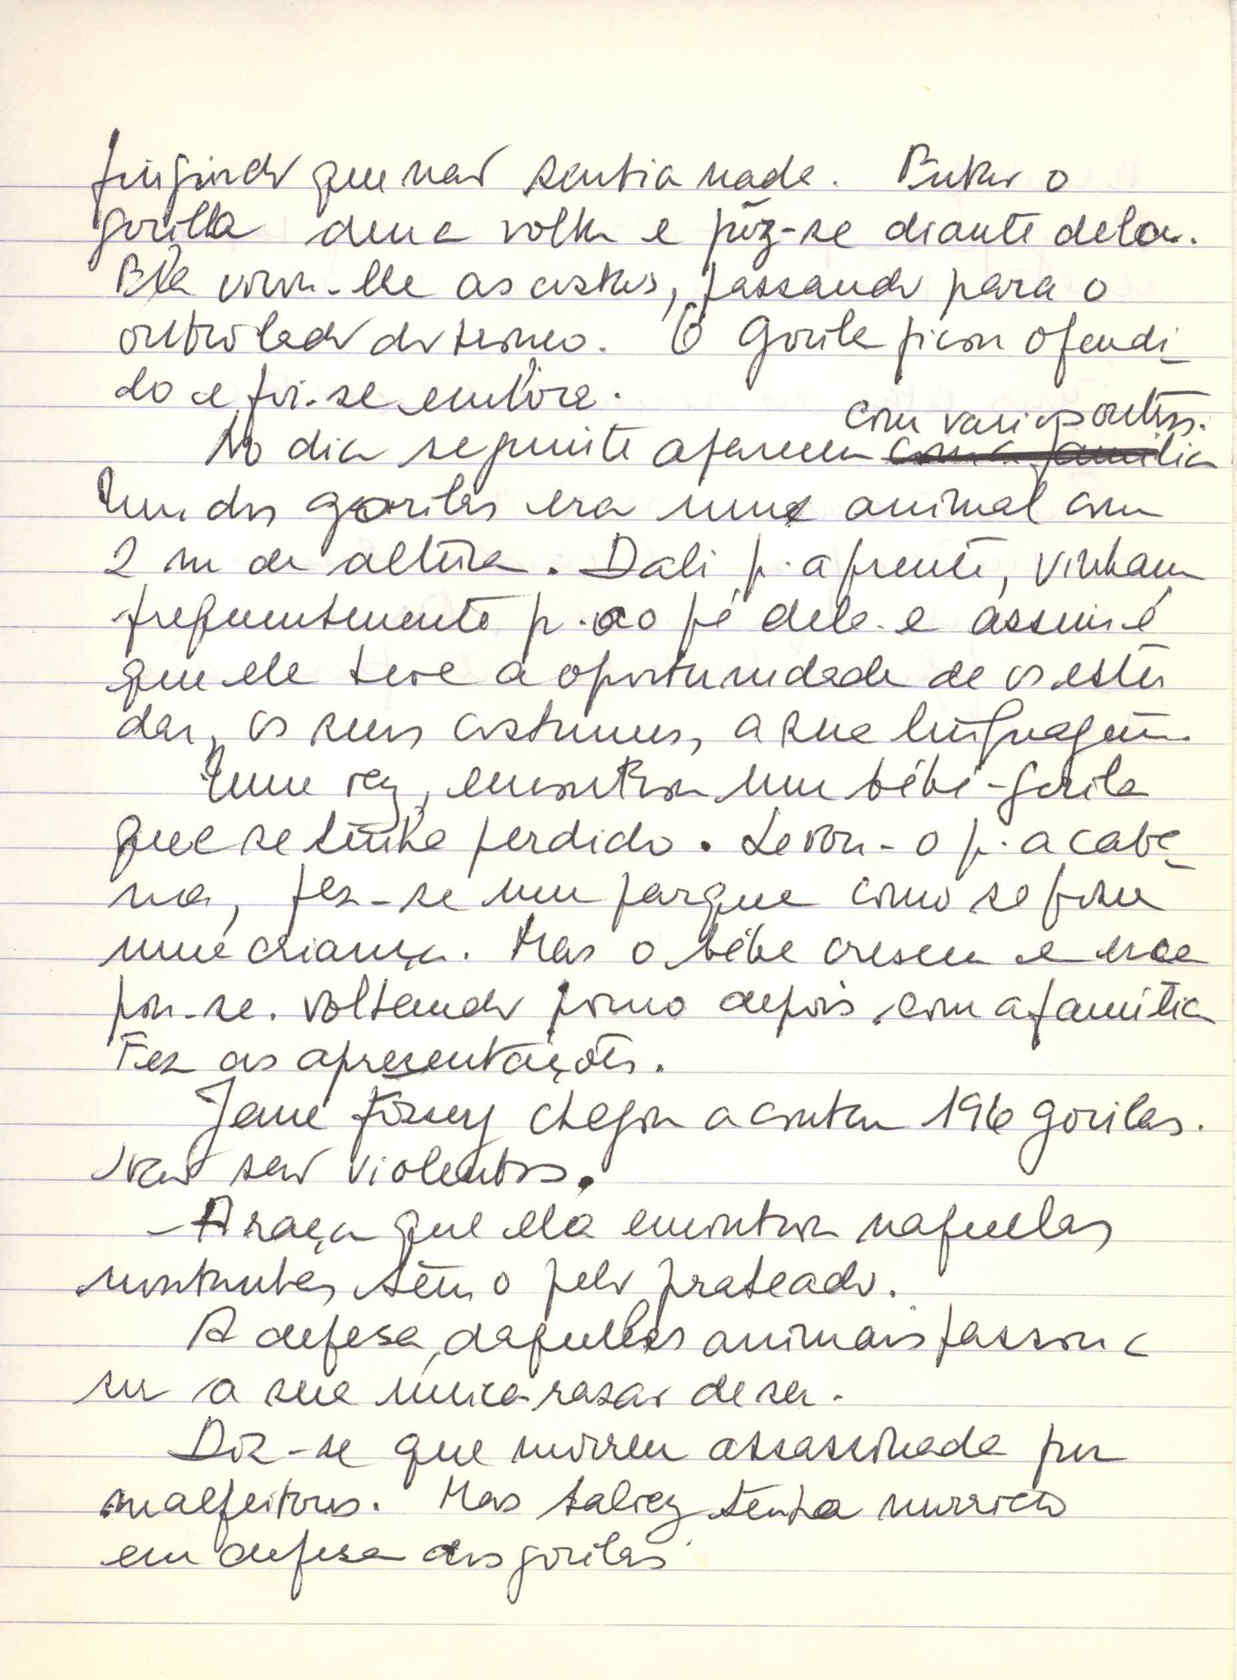 fingindo que não sentia nada. Então o
gorilla deu a volta e pôz-se diante dela.
Ela virou-lhe as costas, passando para o
outro lado do tronco. O Gorila ficou ofendi-
do e foi-se embora.
com varios outros.
No dia seguinte apareceu com a familia
Um dos gorilas era um animal com
2 m de altura. Dali p. a frente, vinham
frequentemente p. ao pé dele e assim é
que ele teve a oportunidade de os estu
dar, os seus costumes, a sua linguagem.
Uma vez, encontrou um bébé-gorila
que se tinha perdido. Levou-o p. a caba-
na, fez-se um parque como se fosse
uma criança. Mas o bébe cresceu e esca
pou-se. voltando pouco depois com a familia
Fez as apresentações.
Jane Fossey chegou a contar 196 gorilas.
Não são violentos.
- A raça que ela encontrou naquellas
montanhas têm o pelo prateado.
A defesa daquelles animais passou a
ser a sua unica razão de ser.
Diz-se que morreu assassinada por
malfeitores. Mas talvez tenha morrido
em defesa dos gorilas